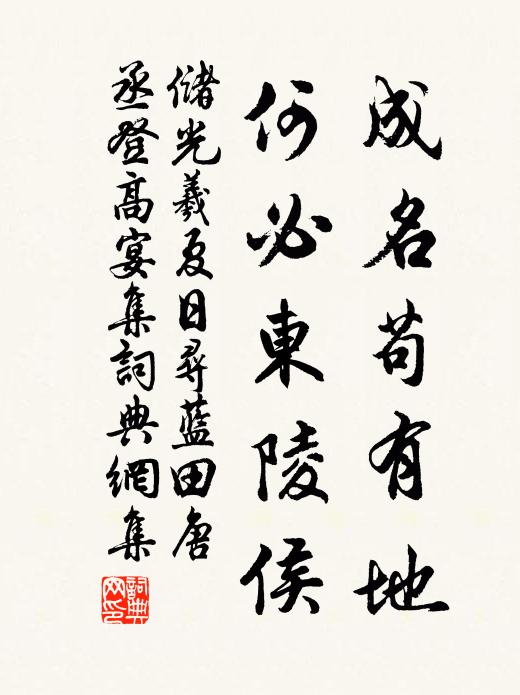 成名苟有地
何必東陵侯
儲光羲夏日尋藍田唐
丞登高宴集詞典網集
詞典网印